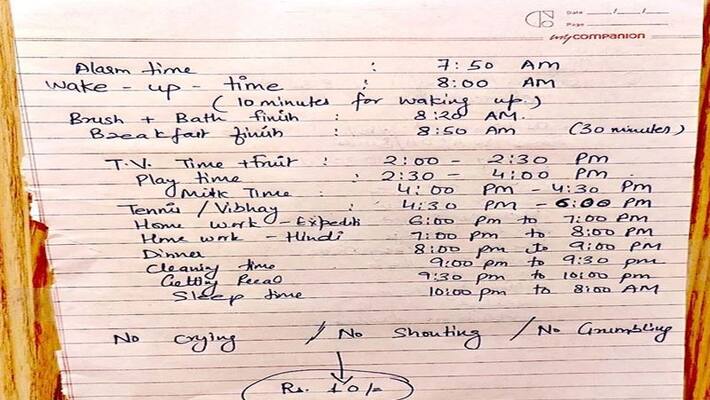 Date / /
Page
mycompanion
Alarm time : 7:50 AM
Wake-up-time : 8:00 AM
(10 minutes for waking up.)
Brush + Bath finish : 8:20 AM.
Breakfast finish : 8:50 AM (30 minutes)
T.V. Time + Fruit : 2:00 - 2:30 PM
Play time : 2:30 - 4:00 PM.
Milk Time : 4:00 PM - 4:30 PM
Tennis / Vibhay : 4:30 PM - 6:00 PM
Home work - 6:00 Pm to 7:00 Pm
Home work - Hindi 7:00 Pm to 8:00 PM
Dinner 8:00 pm to 9:00 PM
Cleaning time 9:00 pm to 9:30 pm
Getting 9:30 pm to 10:00 pm
Sleep time 10:00 pm to 8:00 AM
No crying / No Shouting / No Grumbling
Rs. 10/=